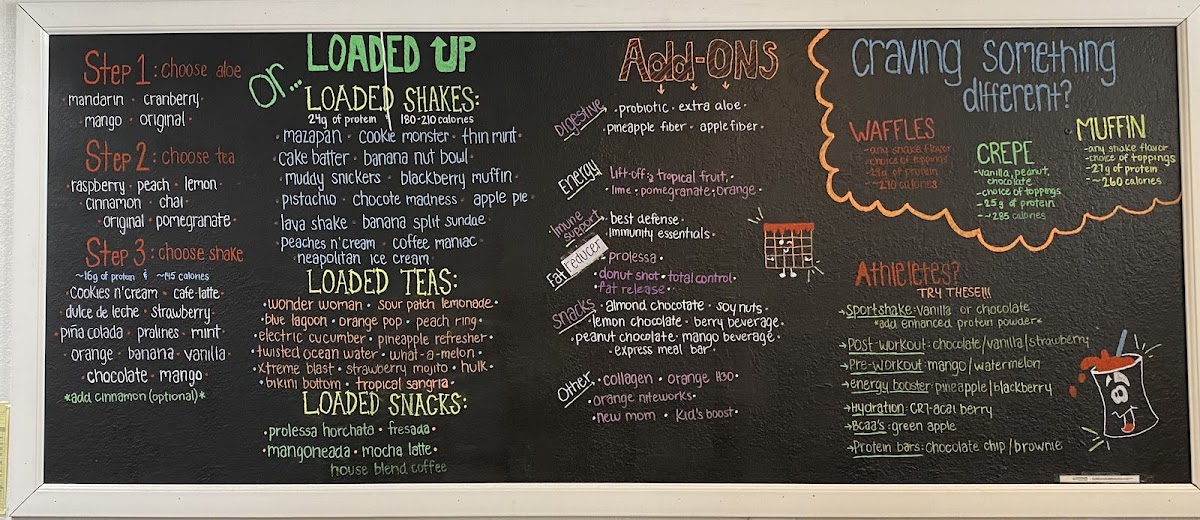 Step 1: choose aloe
mandarin cranberry
mango original
Step 2: choose tea
raspberry peach lemon
cinnamon chai
original pomegranate
Step 3: choose shake
~16g of protein & ~145 calories
cookies n'cream cafe latte
dulce de leche strawberry
piña colada pralines mint
orange banana vanilla
chocolate mango
*add cinnamon (optional)*
Or...
LOADED UP
LOADED SHAKES:
24g of protein 180-210 calories
mazapan · cookie monster · thin mint
cake batter · banana nut bowl
muddy snickers · blackberry muffin
pistachio · chocote madness · apple pie
lava shake · banana split sundae
peaches n'cream · coffee maniac
neapolitan ice cream
LOADED TEAS:
wonder woman · sour patch lemonade
blue lagoon · orange pop · peach ring
electric cucumber · pineapple refresher
twisted ocean water · what-a-melon
xtreme blast · strawberry mojito · hulk
bikini bottom · tropical sangria
LOADED SNACKS:
prolessa horchata · fresada
mangoneada · mocha latte
house blend coffee
Add-ONS
Digestive · probiotic · extra aloe
pineapple fiber · apple fiber
Energy · Lift-off: tropical fruit,
lime, pomegranate, orange
Imune support · best defense
immunity essentials
Fat reducer · prolessa
donut shot · total control
fat release
Snacks · almond chocolate · soy nuts
lemon chocolate · berry beverage
peanut chocolate · mango beverage
express meal bar
Other · collagen · orange H30
orange niteworks
new mom · Kid's boost
Craving something
different?
WAFFLES
-any shake flavor
-choice of toppings
~230 calories
CREPE
-vanilla, peanut,
chocolate
-choice of toppings
-25g of protein
-~285 calories
MUFFIN
-any shake flavor
-choice of toppings
-27g of protein
-~260 calories
Athleletes?
TRY THESE!!!
Sportshake: vanilla or chocolate
*add enhanced protein powder*
Post-workout: chocolate/vanilla/strawberry
Pre-workout: mango/watermelon
energy booster: pineapple/blackberry
Hydration: CR7-acai berry
Bcaa's: green apple
Protein bars: chocolate chip/brownie